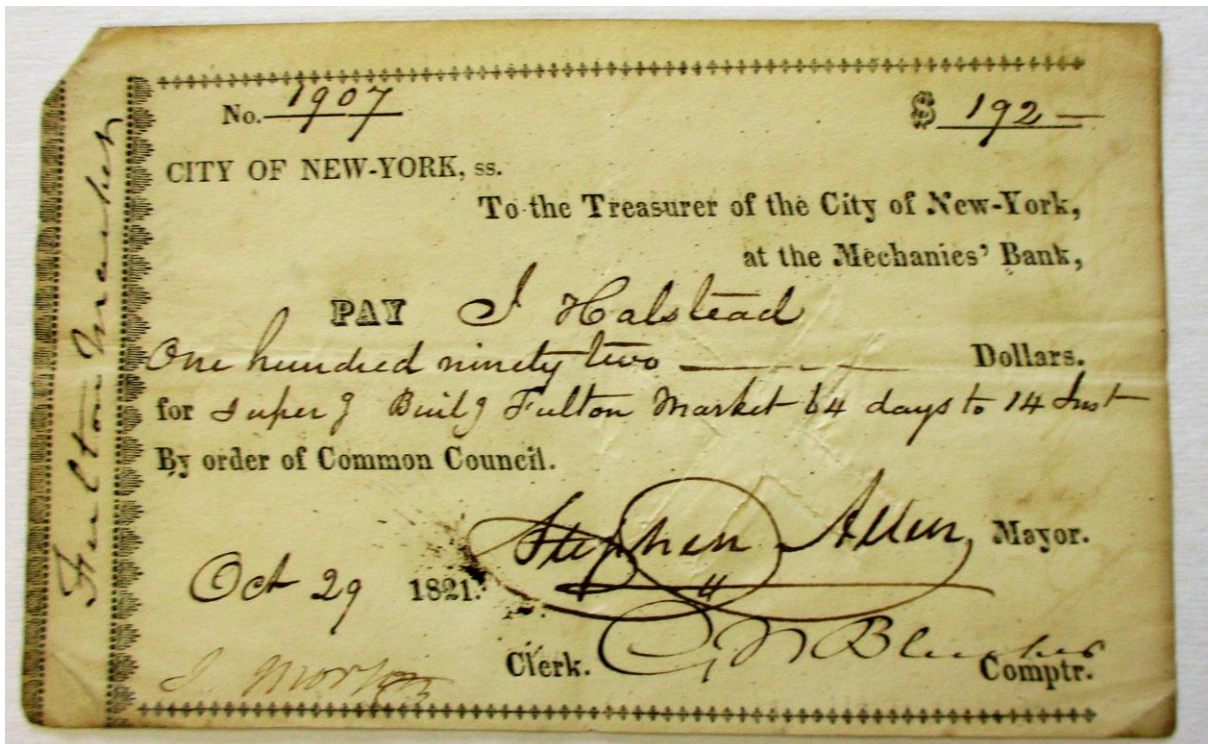 Fulton Market
No. 1907 $ 192 —
CITY OF NEW-YORK, ss.
To the Treasurer of the City of New-York,
at the Mechanics' Bank,
PAY J Halstead
One hundred ninety two — Dollars.
for superg Builg Fulton Market 64 days to 14 Inst
By order of Common Council.
Stephen Allen, Mayor.
Oct 29 1821.
J Morton Clerk. Comptr.